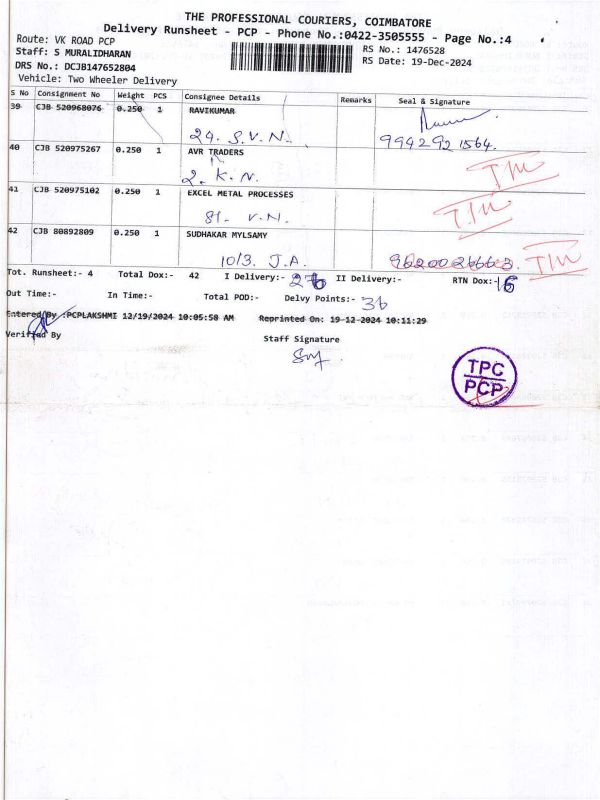 THE PROFESSIONAL COURIERS, COIMBATORE
Delivery Runsheet - PCP - Phone No.:0422-3505555 - Page No.:4
Route: VK ROAD PCP
RS No.: 1476528
Staff: S MURALIDHARAN
RS Date: 19-Dec-2024
DRS No.: DCJB147652804
Vehicle: Two Wheeler Delivery
S No Consignment No Weight PCS Consignee Details Remarks Seal & Signature
39 CJB 520968076 0.250 1 RAVIKUMAR
24. S.V.N. 9942921564.
40 CJB 520975267 0.250 1 AVR TRADERS
2. K.N.
41 CJB 520975102 0.250 1 EXCEL METAL PROCESSES
81. V.N.
42 CJB 80892809 0.250 1 SUDHAKAR MYLSAMY
10/3. J.A.
Tot. Runsheet:- 4 Total Dox:- 42 I Delivery:- II Delivery:- RTN Dox:-
Out Time:- In Time:- Total POD:- Delvy Points:- 36
Entered By :PCPLAKSHMI 12/19/2024 10:05:58 AM Reprinted On: 19-12-2024 10:11:29
Verified By
Staff Signature
TPC
PCP